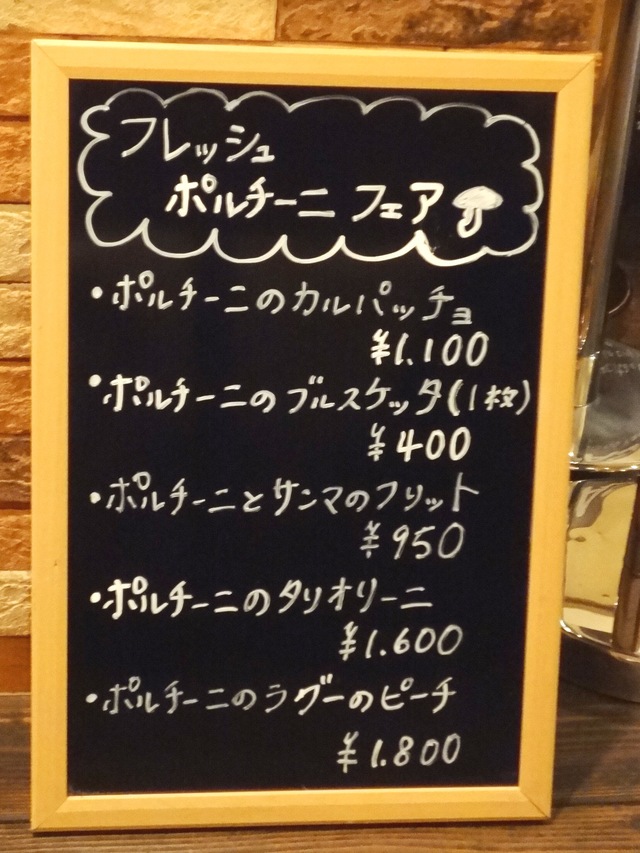 フレッシュ
ポルチーニ フェア
・ポルチーニのカルパッチョ
¥1.100
・ポルチーニのブルスケッタ(1枚)
¥400
・ポルチーニとサンマのフリット
¥950
・ポルチーニのタリオリーニ
¥1.600
・ポルチーニのラグーのピーチ
¥1.800